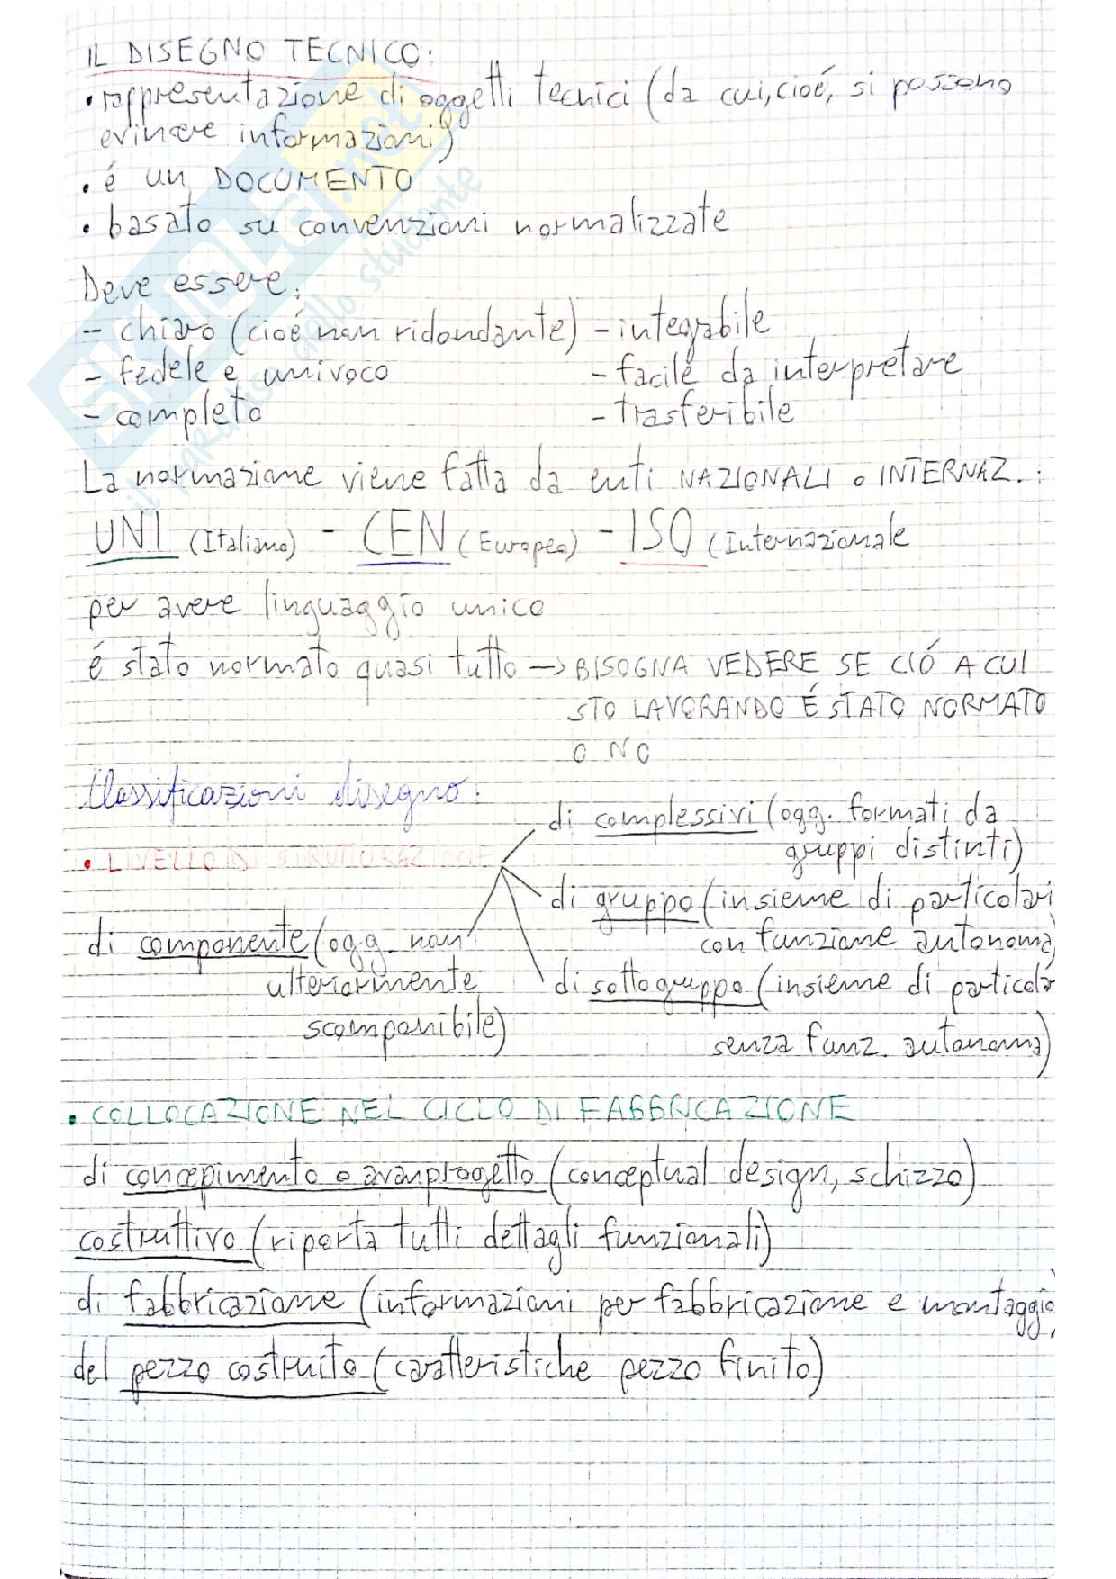 IL DISEGNO TECNICO:
• rappresentazione di oggetti tecnici (da cui, cioé, si possono
evincere informazioni)
• é un DOCUMENTO
• basato su convenzioni normalizzate
Deve essere:
- chiaro (cioé non ridondante) - integrabile
- fedele e univoco - facile da interpretare
- completo - trasferibile
La normazione viene fatta da enti NAZIONALI o INTERNAZ.:
UNI (Italiano) - CEN (Europeo) - ISO (Internazionale
per avere linguaggio unico
é stato normato quasi tutto -> BISOGNA VEDERE SE CIÓ A CUI
STO LAVORANDO É STATO NORMATO
O NO
Classificazioni disegno:
di complessivi (ogg. formati da
gruppi distinti)
• LIVELLO DI STRUTTURAZIONE
di gruppo (insieme di particolari
con funzione autonoma)
di componente (ogg. non
ulteriormente
scomponibile)
di sottogruppo (insieme di particola
senza funz. autonoma)
• COLLOCAZIONE NEL CICLO DI FABBRICAZIONE
di concepimento o avanprogetto (conceptual design, schizzo)
costruttivo (riporta tutti dettagli funzionali)
di fabbricazione (informazioni per fabbricazione e montaggio)
del pezzo costruito (caratteristiche pezzo finito)
skuola.net